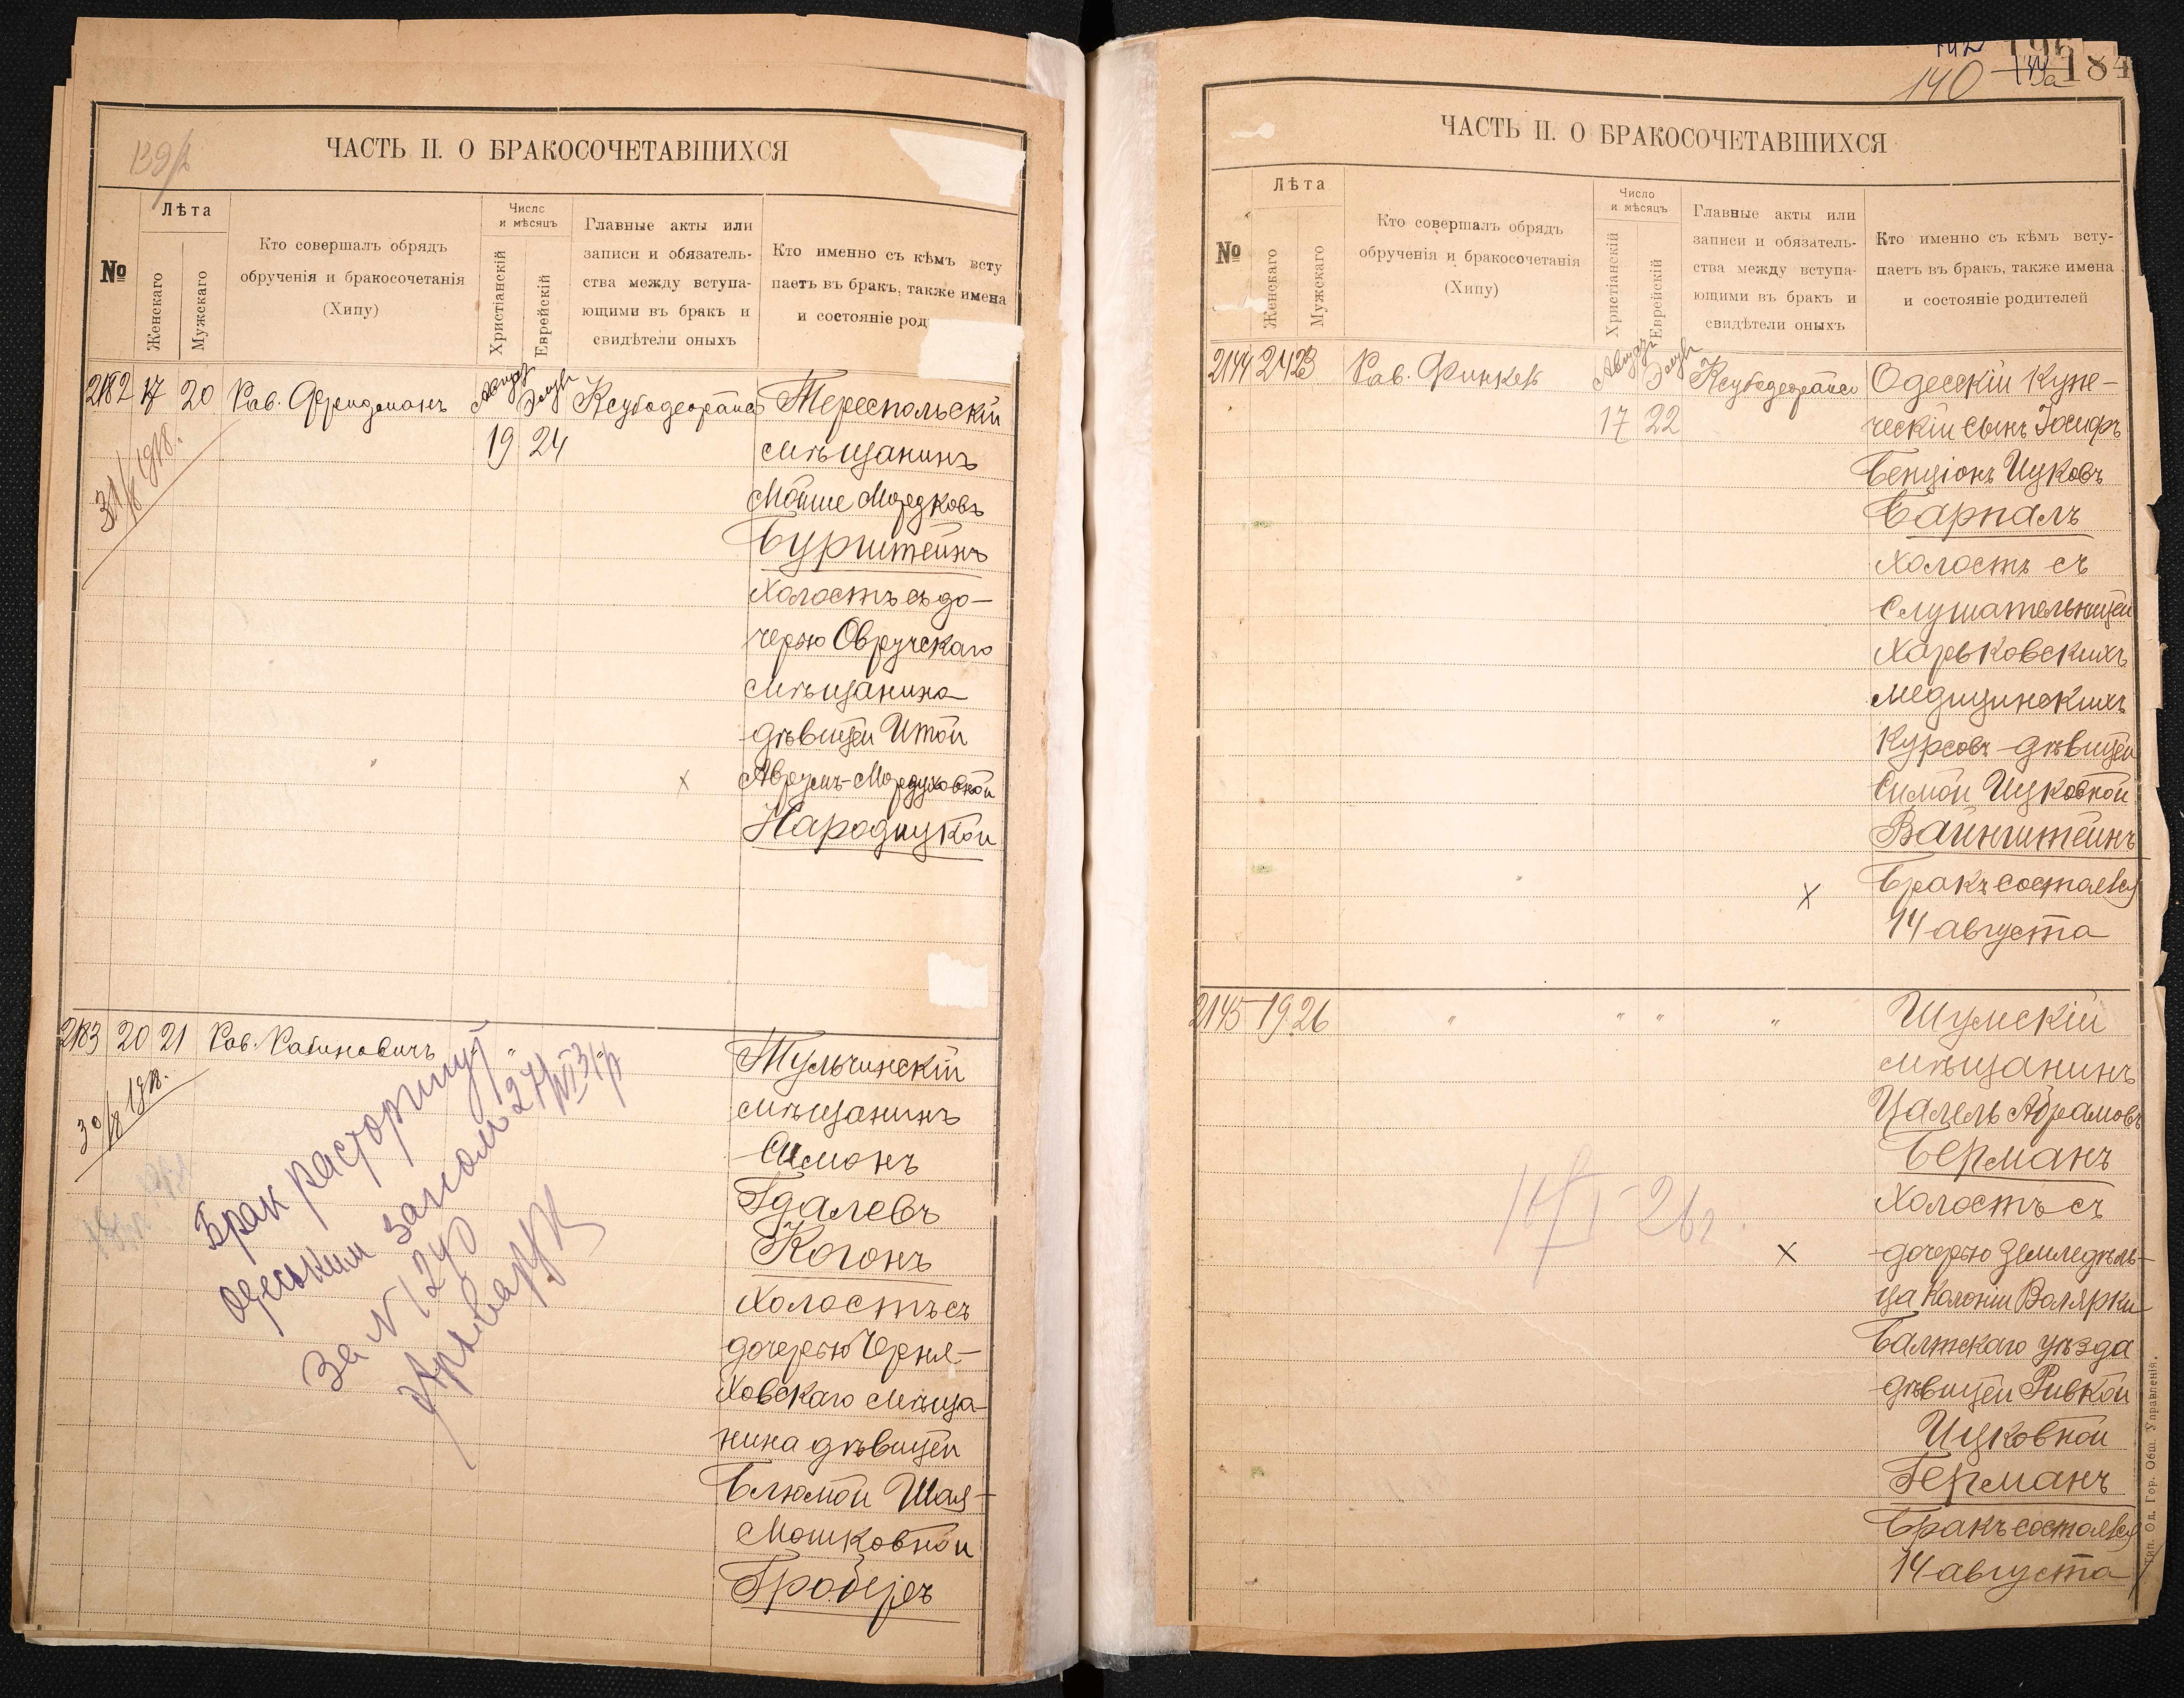 139/2
ЧАСТЬ II. О БРАКОСОЧЕТАВШИХСЯ
№
Лѣта
Женскаго
Мужескаго
Кто совершалъ обрядъ
обрученія и бракосочетанія
(Хипу)
Число
и мѣсяцъ
Христіанскій
Еврейскій
Главные акты или
записи и обязатель-
ства между вступа-
ющими въ бракъ и
свидѣтели оныхъ
Кто именно съ кѣмъ всту
паетъ въ бракъ, также имена
и состояніе род
2182 17 20 Рав. Фридманъ Август Элулъ Тереспольскій
19 24 мѣщанинъ
Мойше Мордковъ
Бурштейнъ
холостъ съ до-
черью Овручскаго
мѣщанина
дѣвицей Итой
Аврумъ-Мордуховной
Народицкой
31/8 1918.
2183 20 21 Рав. Рабиновичъ " "
Тульчинскій
мѣщанинъ
Симонъ
Гдалевъ
Когонъ
холостъ съ
дочерью Черня-
ховскаго мѣща-
нина дѣвицей
Блюмой Шая-
Мошковной
Гробиръ
Брак расторгнут
одеським загсом 27/VI 31 р
За N 1240
140 184
ЧАСТЬ II. О БРАКОСОЧЕТАВШИХСЯ
№
Лѣта
Женскаго
Мужскаго
Кто совершалъ обрядъ
обрученія и бракосочетанія
(Хипу)
Число
и мѣсяцъ
Христіанскій
Еврейскій
Главные акты или
записи и обязатель-
ства между вступа-
ющими въ бракъ и
свидѣтели оныхъ
Кто именно съ кѣмъ всту-
паетъ въ бракъ, также имена
и состояніе родителей
2144 24 23 Рав. Финкель Август Элулъ Одесскій купе-
17 22 ческій сынъ Іосифъ
Бенціонъ Ицковъ
Барналъ
холостъ съ
слушательницей
Харьковскихъ
медицинскихъ
курсовъ-дѣвицей
Симой Ицковной
Вайнштейнъ
Бракъ состоялся
14 августа
2145 19 26 " " " " Шумскій
мѣщанинъ
Цалель Абрамовъ
Берманъ
холостъ съ
дочерью земледѣль-
ца колоніи Волярки
Балтскаго уѣзда
дѣвицей Ривкой
Ицковной
Германъ
Бракъ состоялся
14 августа
Тип. Од. Гор. Общ. Управленія.